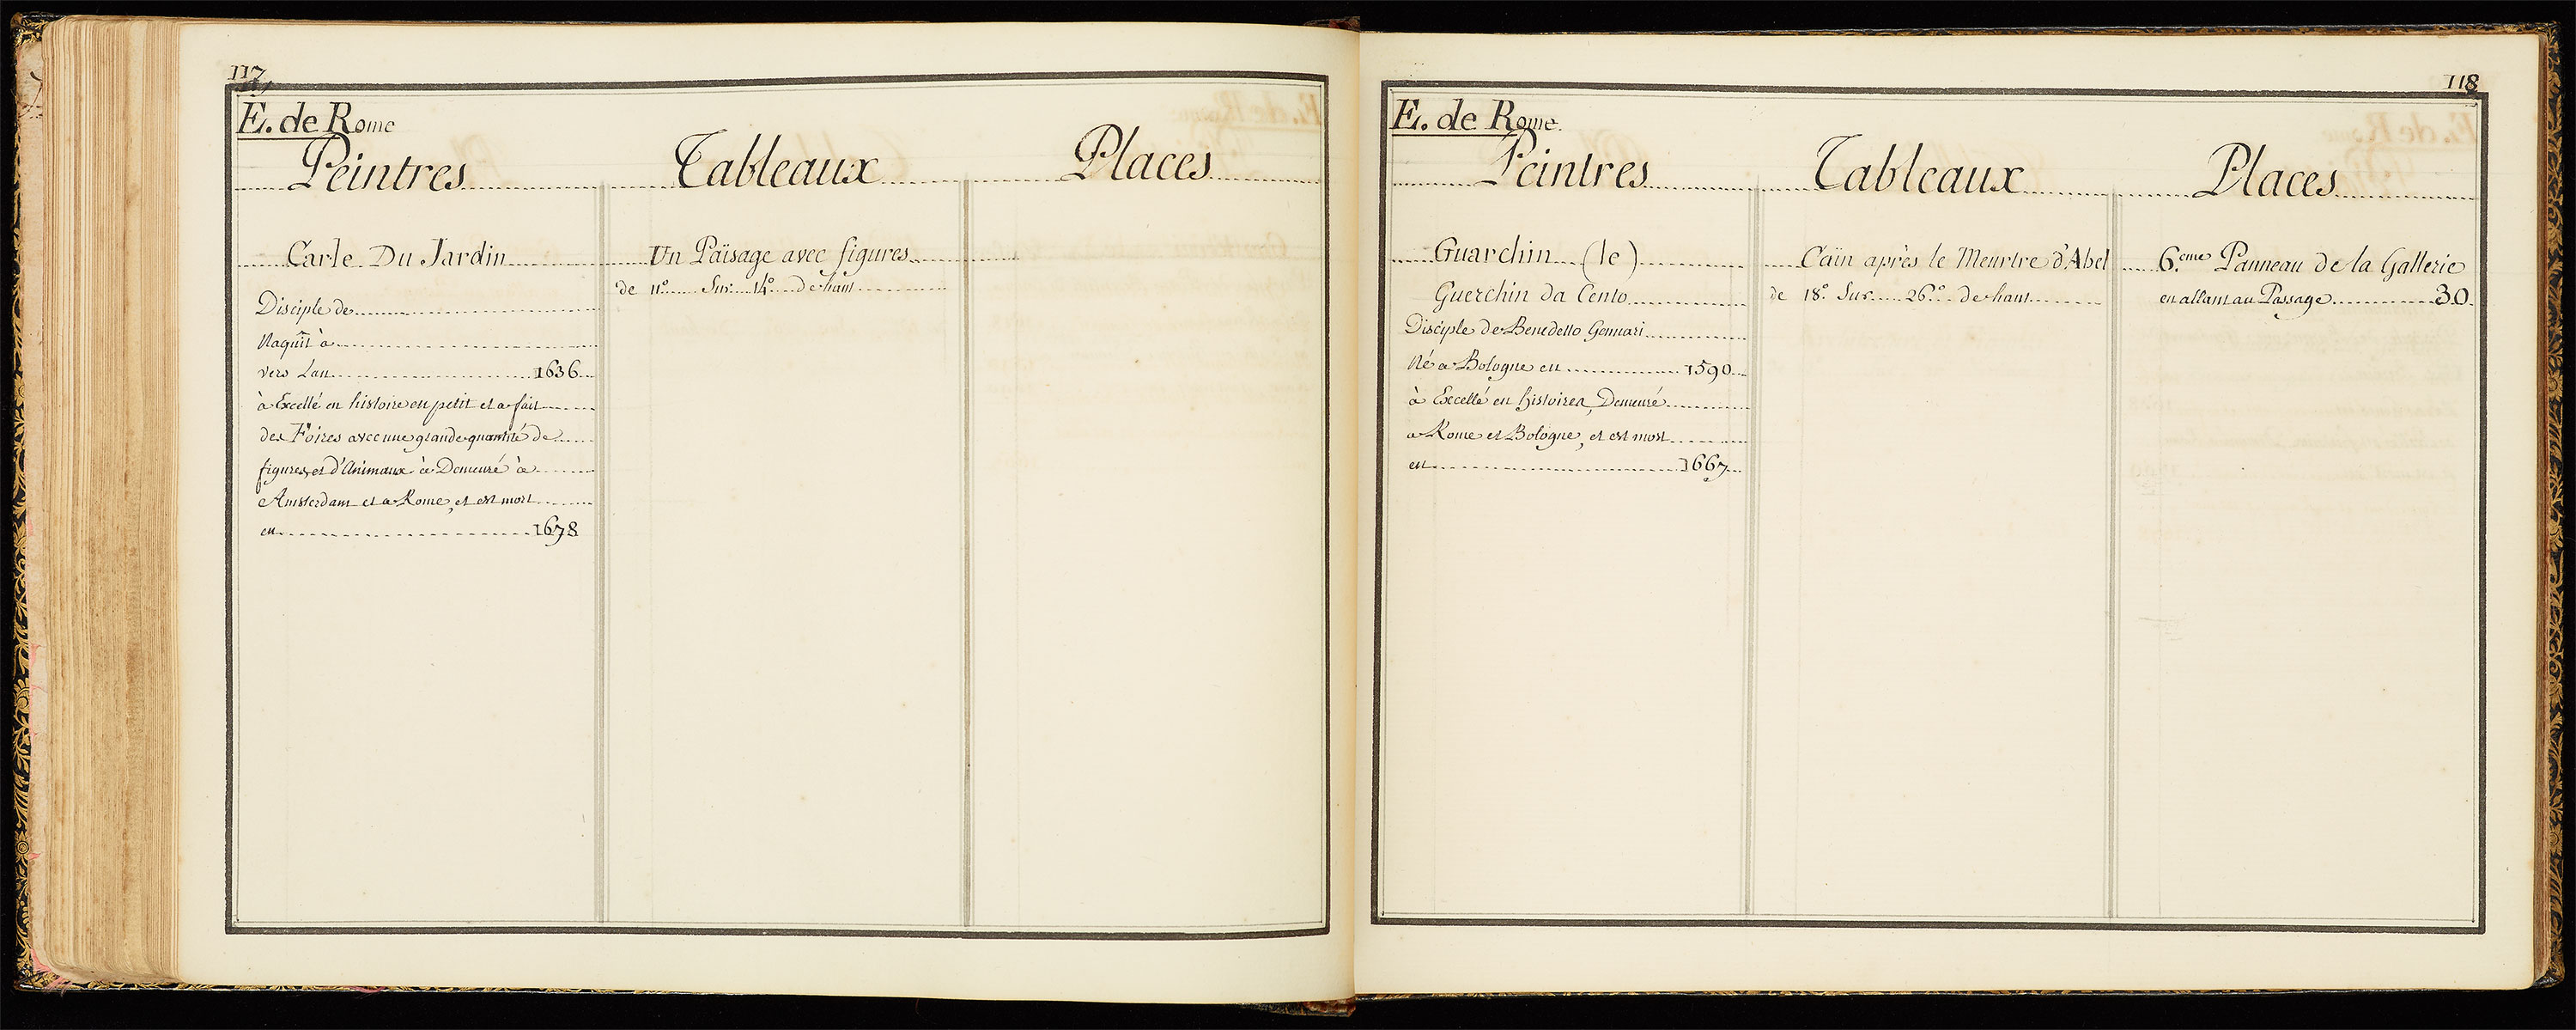 117
E. de Rome
Peintres Tableaux Places
Carle Du Jardin
Disciple de
Naquit à
vers Lan 1636
à Excellé en histoire en petit et a fait
des Foires avec une grande quantité de
figures et d'Animaux à Demeuré à
Amsterdam et a Rome, et est mort
en 1678
Un Païsage avec figures
de 11.° Sur 14.° de haut
118
E. de Rome
Peintres Tableaux Places
Guarchin (le)
Guerchin da Cento
Disciple de Benedetto Gennari
Né a Bologne en 1590
à Excellé en histoires, Demeuré
a Rome et Bologne, et est mort
en 1667
Caïn après le Meurtre d'Abel
de 18.° Sur 26.° de haut
6.eme Panneau de la Gallerie
en allant au Passage 30